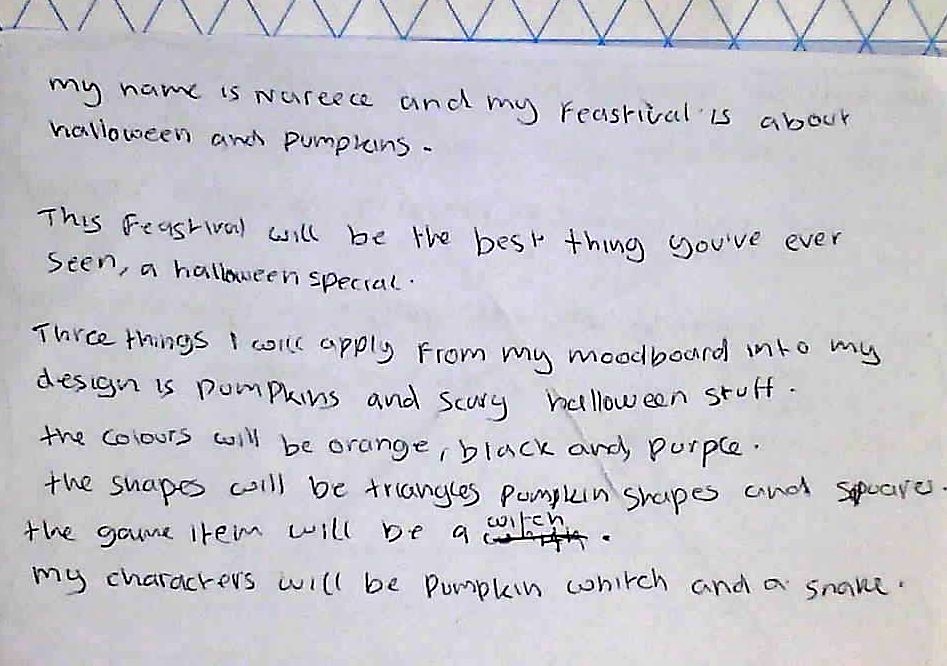 my name is Nareece and my Feastival is about
halloween and pumpkins.
This Feastival will be the best thing you've ever
seen, a halloween special.
Three things I will apply from my moodboard into my
design is pumpkins and scary halloween stuff.
the colours will be orange, black and, purple.
the shapes will be triangles pumpkin shapes and squares.
the game item will be a witch.
my characters will be pumpkin whitch and a snake.